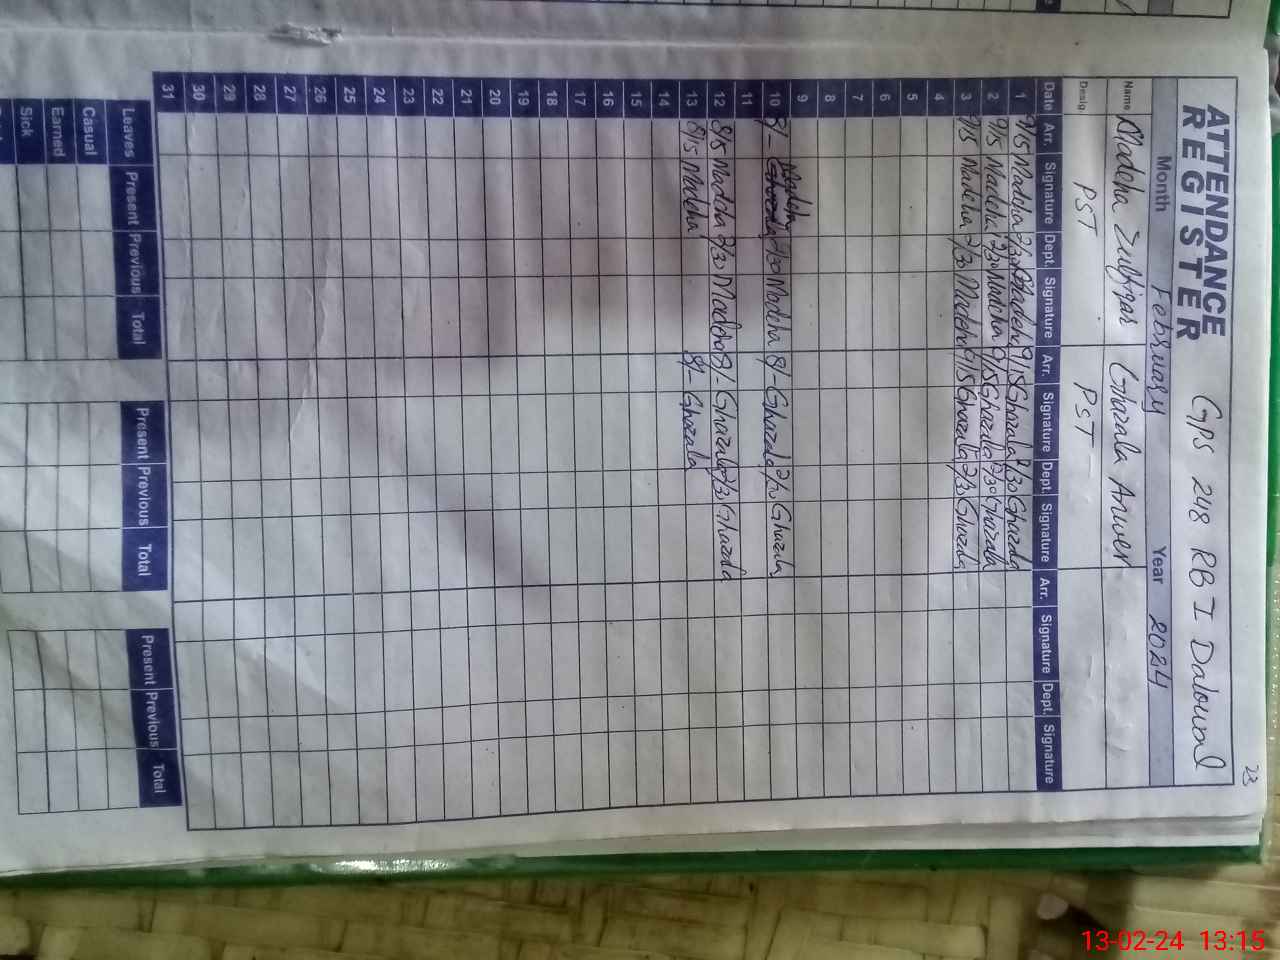 23
ATTENDANCE
REGISTER
GPS 248 RB I Dalowal
Month February Year 2024
Name Madeha Zulfiqar Ghazala Anwer
Desig. PST PST
Date Arr. Signature Dept. Signature Arr. Signature Dept. Signature Arr. Signature Dept. Signature
1 9/15 Madeha 2/30 Madeha 9/15 Ghazala 2/30 Ghazala
2 9/15 Madeha 2/30 Madeha 9/15 Ghazala 2/30 Ghazala
3 9/15 Madeha 2/30 Madeha 9/15 Ghazala 2/30 Ghazala
4
5
6
7
8
9
10 8/- Madeha 2/30 Madeha 8/- Ghazala 2/30 Ghazala
11
12 8/15 Madeha 2/30 Madeha 8/- Ghazala 2/30 Ghazala
13 8/15 Madeha 8/- Ghazala
14
15
16
17
18
19
20
21
22
23
24
25
26
27
28
29
30
31
Leaves Present Previous Total Present Previous Total Present Previous Total
Casual
Earned
Sick
13-02-24 13:15